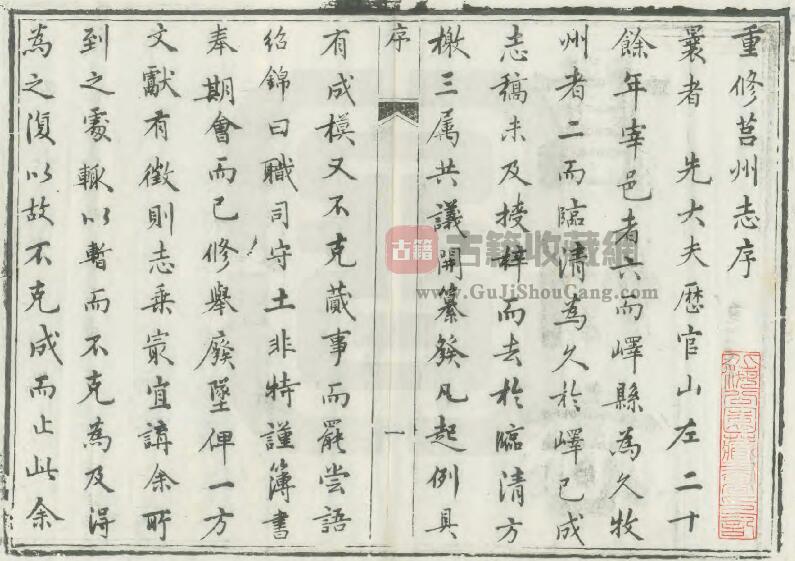 重修莒州志序
曩者　先大夫歷官山左二十
餘年宰邑者六而嶧縣為久牧
州者二而臨清為久於嶧已成
志稿未及授梓而去於臨清方
檄三属共議開纂發凡起例具
序
一
有成模又不克蕆事而罷尝語
紹錦曰職司守土非特謹簿書
奉期會而已修舉廢墜俾一方
文獻有徵則志乘寂宜講余所
到之處輒以暫而不克為及得
為之復以故不克成而止此余
古籍
古籍收藏網
www.GuJiShouCang.com